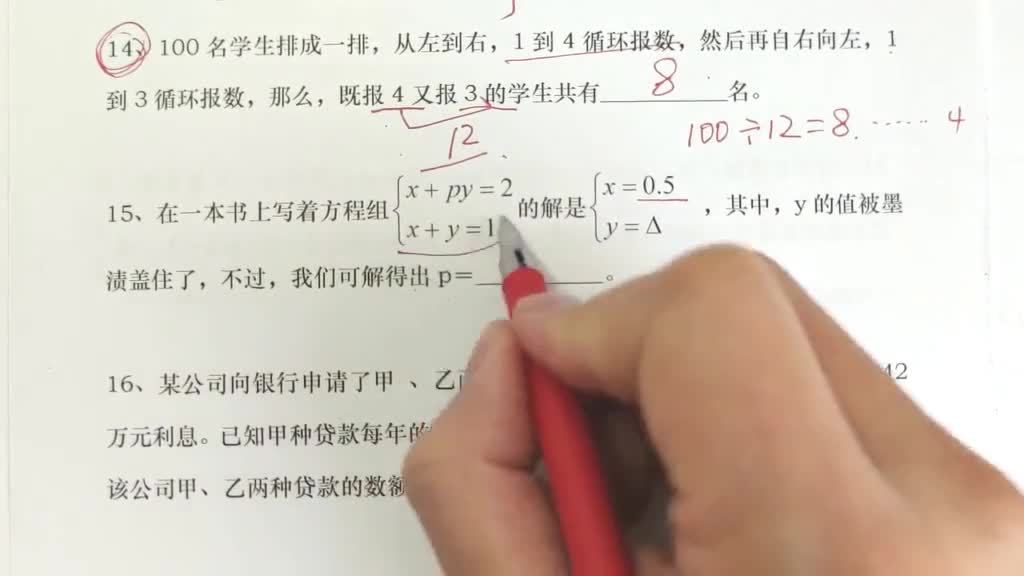 14、100 名学生排成一排，从左到右，1 到 4 循环报数，然后再自右向左，1
到 3 循环报数，那么，既报 4 又报 3 的学生共有 8 名。
12
100÷12=8……4
x + py = 2
15、在一本书上写着方程组 的解是 x = 0.5 ，其中，y 的值被墨
x + y = 1
y = Δ
渍盖住了，不过，我们可解得出 p=______。
16、某公司向银行申请了甲 、乙 42
万元利息。已知甲种贷款每年的
该公司甲、乙两种贷款的数额